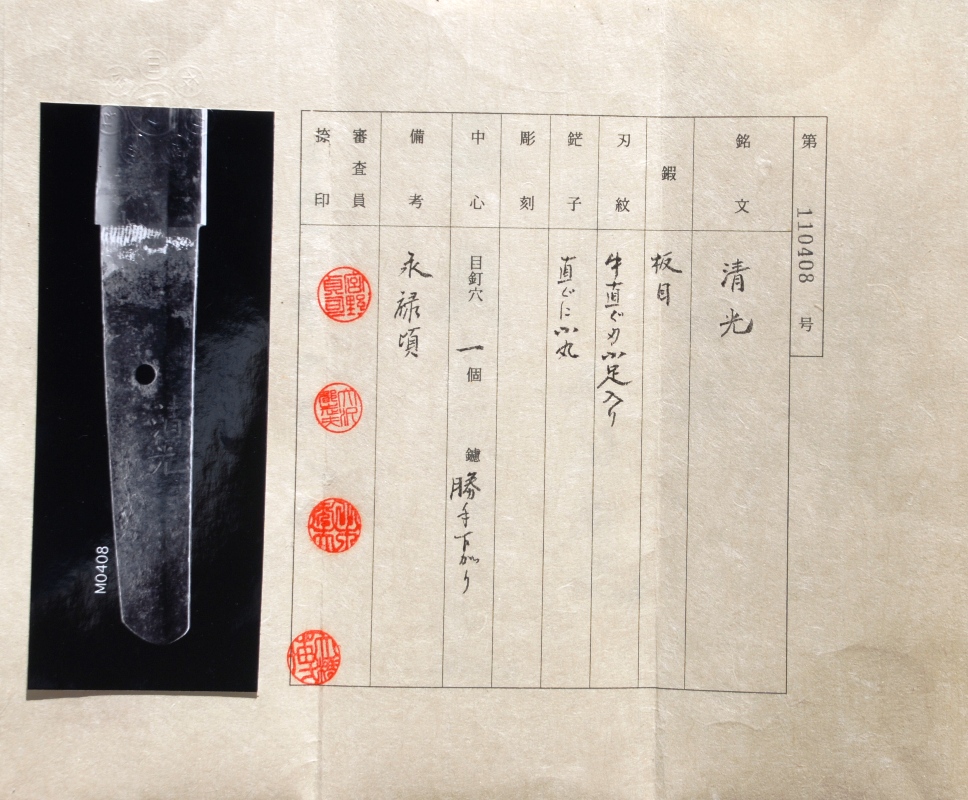 第 110408 号
銘文 清光
鍛 板目
刃紋 中直ぐ刃小足入り
鋩子 直ぐに小丸
彫刻
中心 目釘穴 一 個 鑢 勝手下がり
備考 永禄頃
審査員
捺印
清光
M0408